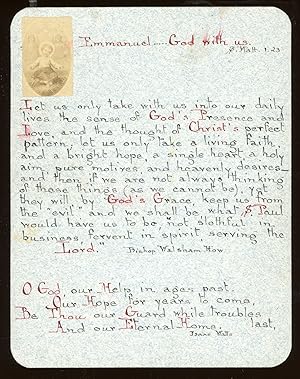 Emmanuel.....God with us.
S. Matt. 1.23
Let us only take with us into our daily
lives the sense of God's Presence and
Love, and the thought of Christ's perfect
pattern, let us only take a living faith
and a bright hope, a single heart, a holy
aim, pure motives, and heavenly desires—
and then, if we are not always thinking
of these things (as we cannot be), yet
they will, by God's Grace, keep us from
"the evil" and we shall be what S. Paul
would have us to be "not slothful in
business, fervent in spirit, serving the
Lord."
Bishop Walsham How.
O God, our Help in ages past,
Our Hope for years to come,
Be Thou our Guard while troubles
last,
And our Eternal Home.
Isaac Watts